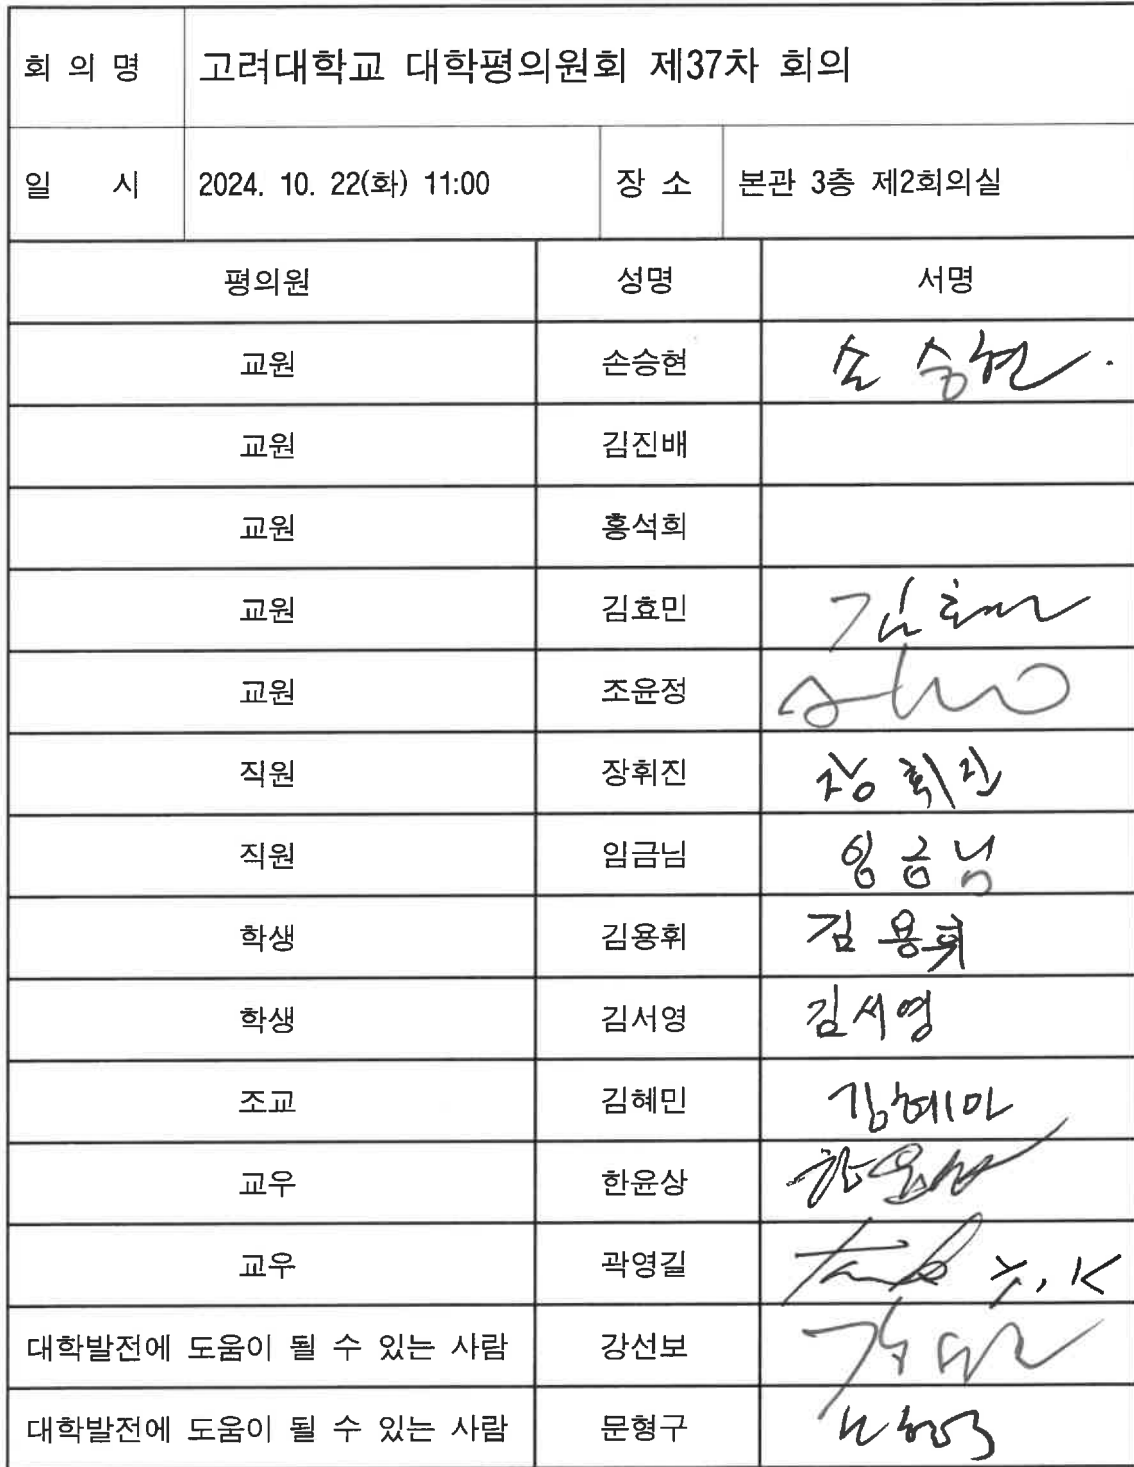 회 의 명 고려대학교 대학평의원회 제37차 회의
일 시 2024. 10. 22(화) 11:00 장 소 본관 3층 제2회의실
평의원 성명 서명
교원 손승현 손승현
교원 김진배
교원 홍석희
교원 김효민 김효민
교원 조윤정
직원 장휘진 장휘진
직원 임금님 임금님
학생 김용휘 김용휘
학생 김서영 김서영
조교 김혜민 김혜민
교우 한윤상 한윤상
교우 곽영길
대학발전에 도움이 될 수 있는 사람 강선보
대학발전에 도움이 될 수 있는 사람 문형구 문형구